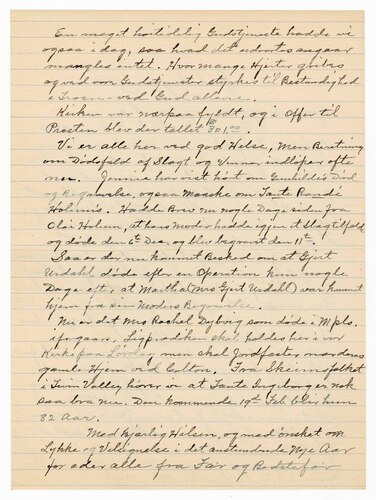 En meget höitidelig Gudstjeneste hadde vi
ogsaa i dag, saa hvad det udvortes angaar
mangles intet. Hvor mange Hjerter gribes
og ved vore Gudstjenester styrkes til Bestandighed
i Troen - ved Gud allene.
Kirken var næsten fyldt, og i Offer til
Presten blev der tallet $301.00.
Vi er alle her ved god Helse, Men Beretning
om Dödsfald af Slægt og Venner indlöper ofte
nu. Jennie har vist hört om Gunhilds Död
og Begravelse, ogsaa Maaske om Tante Randé
Holums. Hadde Brev nu nogle Dage siden fra
Olai Holum, at hans Moder hadde igjen et Slagtilfald
og döde den 6te Dec. og blev begravet den 11te.
Saa er der nu kommet Besked om at Gjert
Urdahl döde efter en Operation kun nogle
Dage eft, at Martha (Mrs Gjert Urdahl) var kommet
hjem fra sin Moders Begravelse.
Nu er det Mrs Rachel Dyborg som döde i Mpls.
iforgaars. Ligprædiken skal holdes her i vor
Kirke paa Lördag men skal Jordfæstes ved deres
gamle Hjem ved Colton. Fra Skeimfolket
i Twin Valley hörer vi at Tante Ingeborg er nok
saa bra nu. Den Kommende 19de Feb. blir hun
82 Aar.
Med kjærlig Hilsen, og med önsket om
Lykke og Velsignelse i det anstundende Nye Aar
for eder alle fra Far og Bedstefar